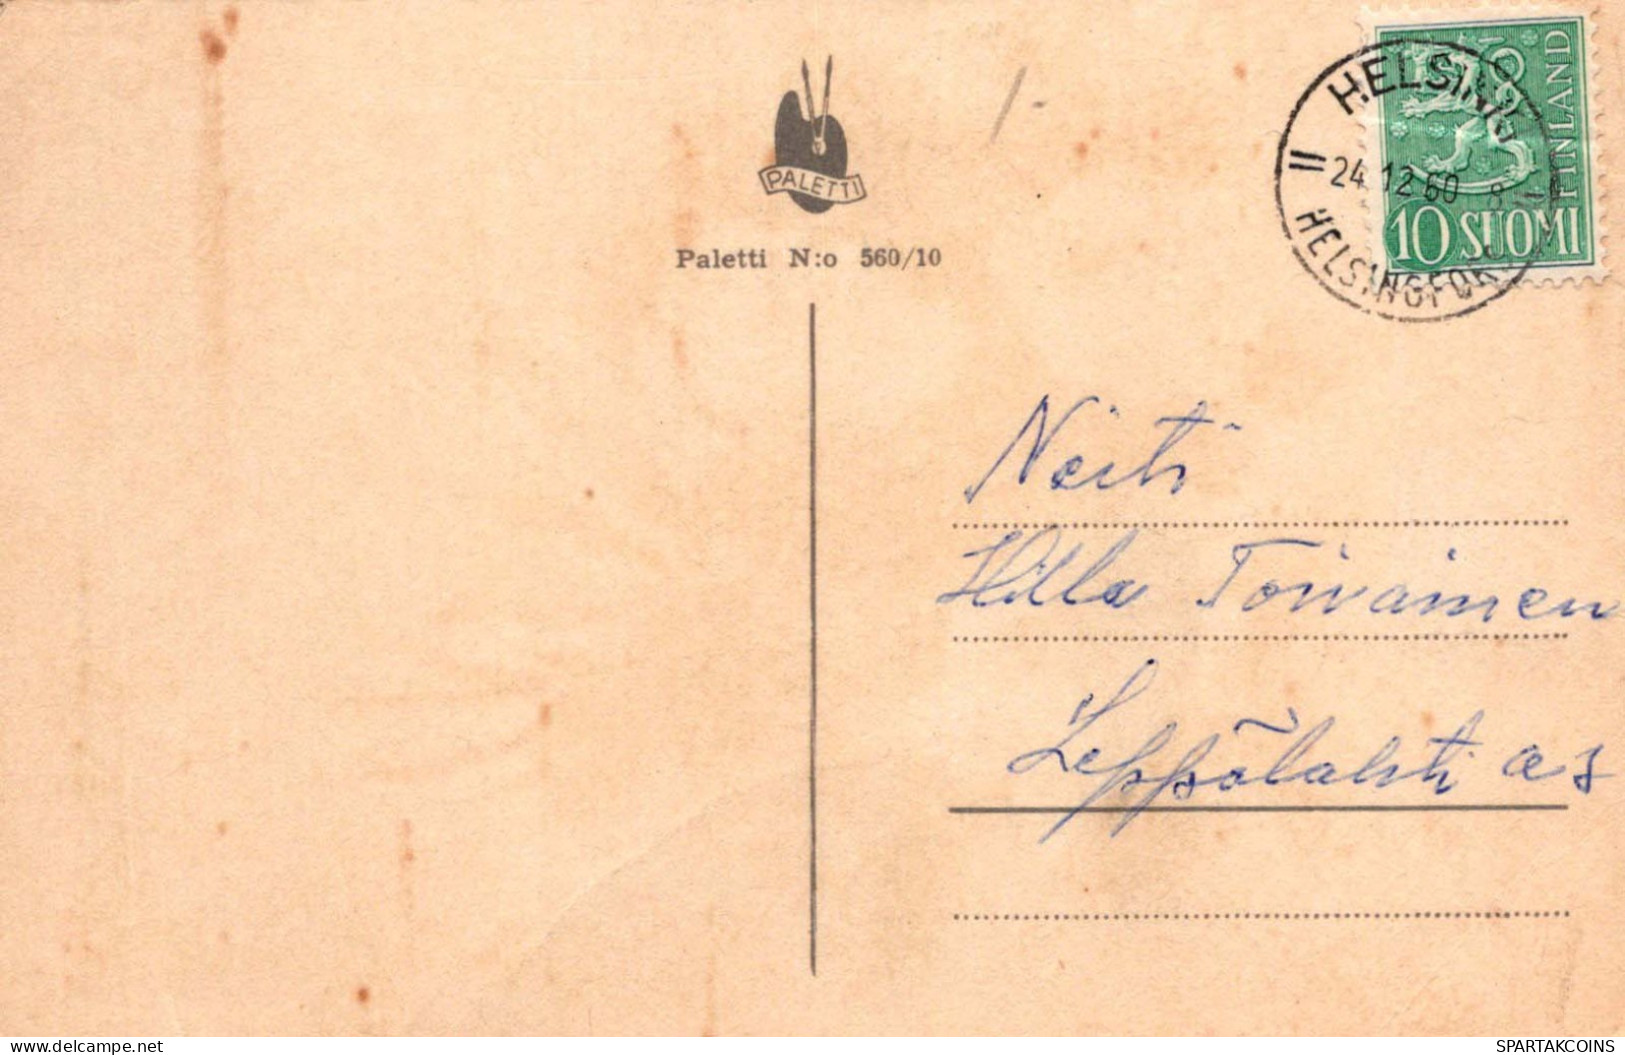 PALETTI
Paletti N:o 560/10
HELSINKI
24.12.60 8
HELSINGFORS
FINLAND
10 SUOMI
Neiti
Hilla Toivainen
Leppälahti as
delcampe.net
SPARTAKCOINS